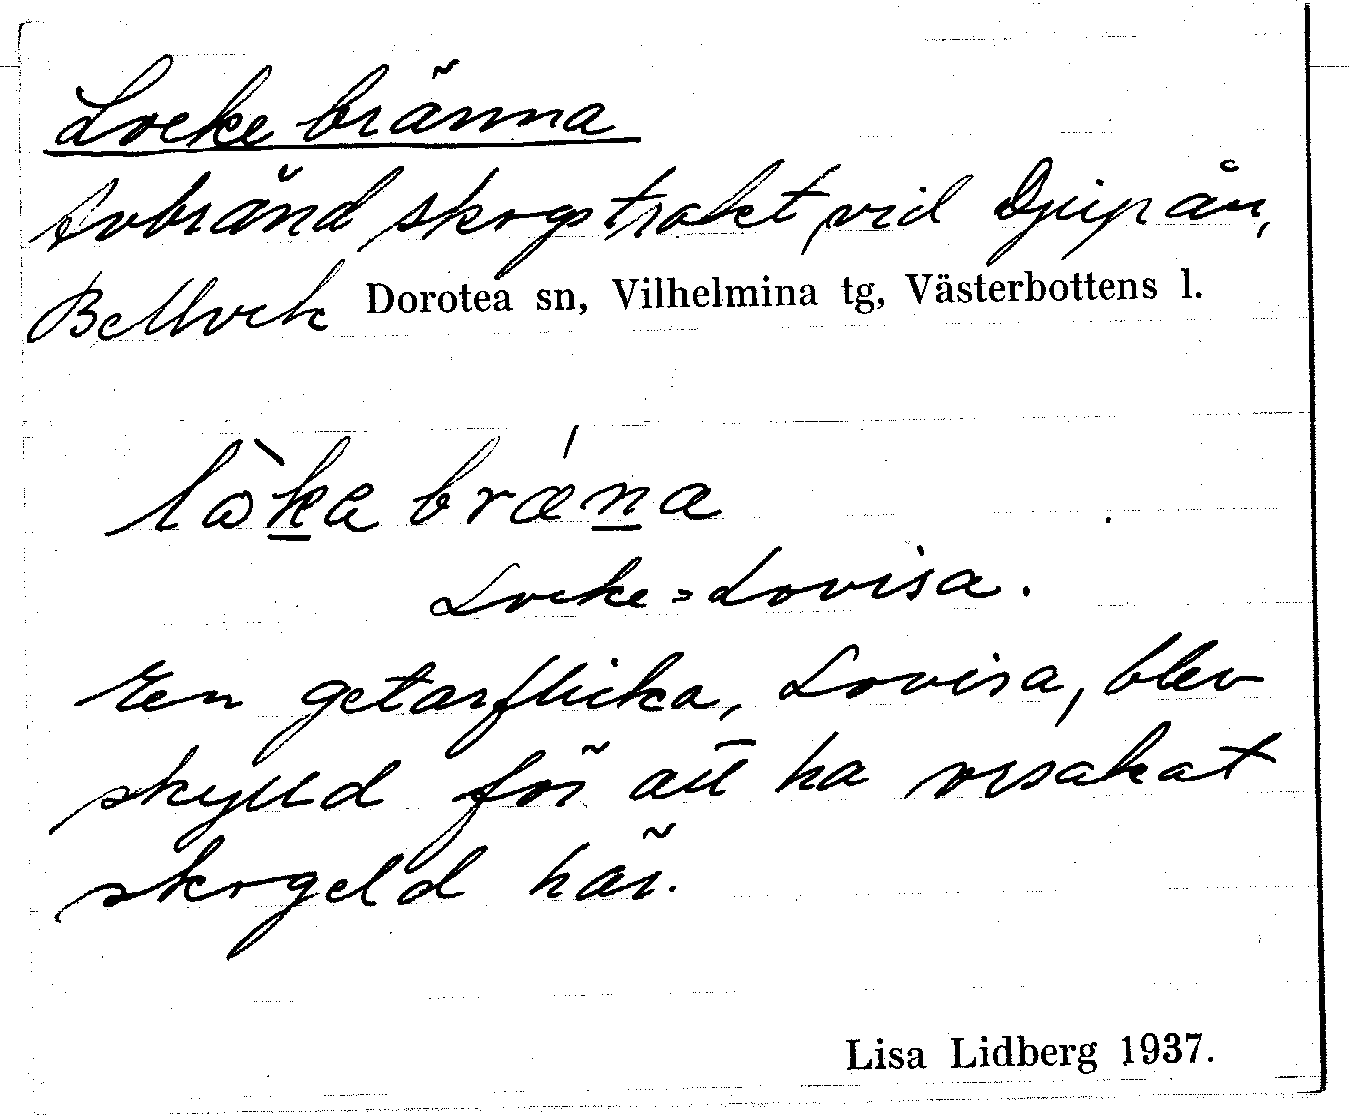 Locke bränna
Avbränd skogstrakt vid Djupån,
Bellvik Dorotea sn, Vilhelmina tg, Västerbottens l.
lòka brǽna
Locke = Lovisa.
En getarflicka, Lovisa, blev
skylld för att ha orsakat
skogeld här.
Lisa Lidberg 1937.